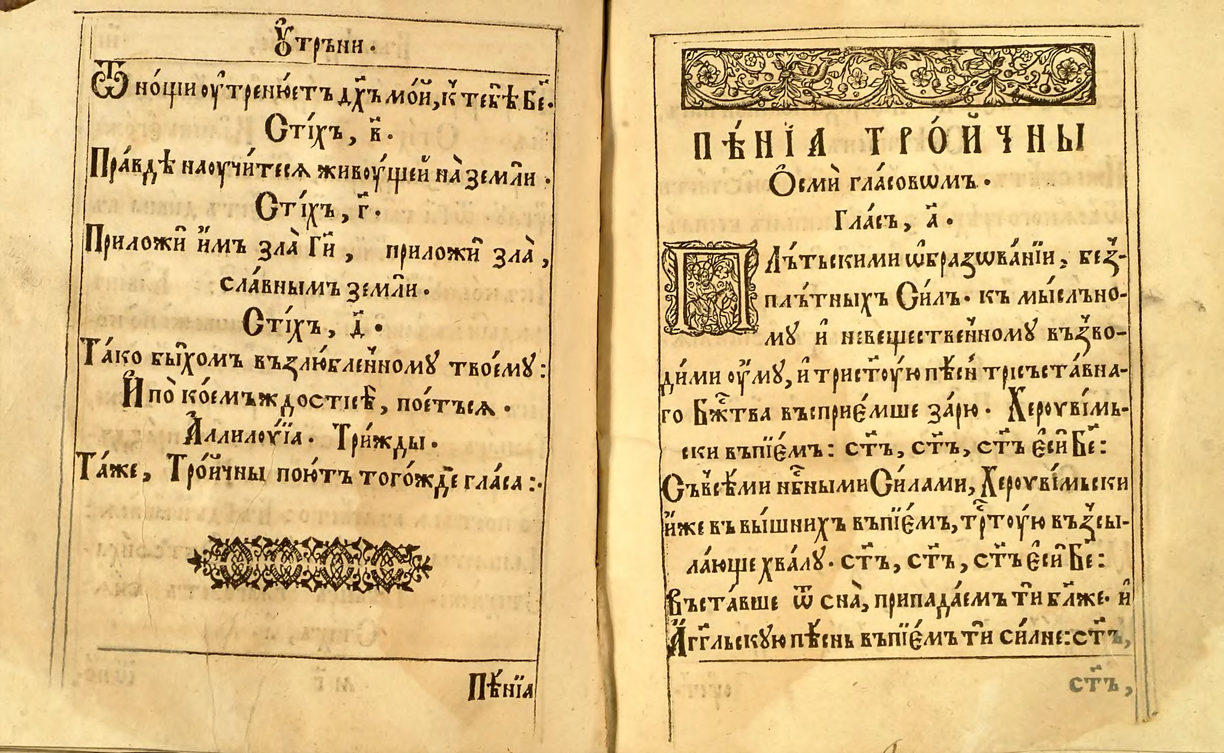 Ѹ҆трьни.
Ѿ но́щи ѹ҆́тренюетъ дх҃ъ мо́й, к̾ тебѣ Бе҃.
Сті́хъ, в҃.
Пра́вдѣ наѹчи́теся живѹ́щей на̀ земли.
Сті́хъ, г҃.
Приложѝ и҆̀мъ зла̀ Ги҃, приложѝ зла̀,
сла́внымъ землѝ.
Сті́хъ, д҃.
Та́ко бы́хомъ възлю́бленномꙋ твоемꙋ:
И҆ по̀ коемъждо стісѣ̀, пое́тъся.
А҆ллилѹ́їа. Три́жды.
Та́же, Тро́йчны пою́тъ того́жде гла́са:.
Пѣ́нїа
ПѢ́НЇА ТРО́ЙЧНЫ
О҆смѝ гла́совѡмъ.
Гла́съ, а҃.
Плъ́тьскими ѡ҆бразѡва́нїи, без̾-
плъ́тныхъ Си́лъ. къ мы́слъно-
мꙋ и҆ невеще́ственномꙋ възво-
ди́ми ѹ҆мꙋ, и҆ трист҃ѹ́ю пѣ́сн трісъста́вна-
го Бж҃тва въсприе́мше за́рю. Херѹві́мь-
ски въпїе́мъ: ст҃ъ, ст҃ъ, ст҃ъ є҆сѝ Бе҃:
Съ̀ всѣ́ми нб҃ными Си́лами, Херѹві́мьски
и҆́же въ вы́шнихъ въпїе́мъ, тр҃тѹ́ю възсы-
ла́юще хвалꙋ̀. ст҃ъ, ст҃ъ, ст҃ъ є҆сѝ Бе҃:
Въста́вше ѿ сна̀, припада́емъ ти бл҃же. и҆
А҆гг҃льскꙋю пѣ́снь въпїе́мъ ти си́лне: ст҃ъ,
ст҃ъ,